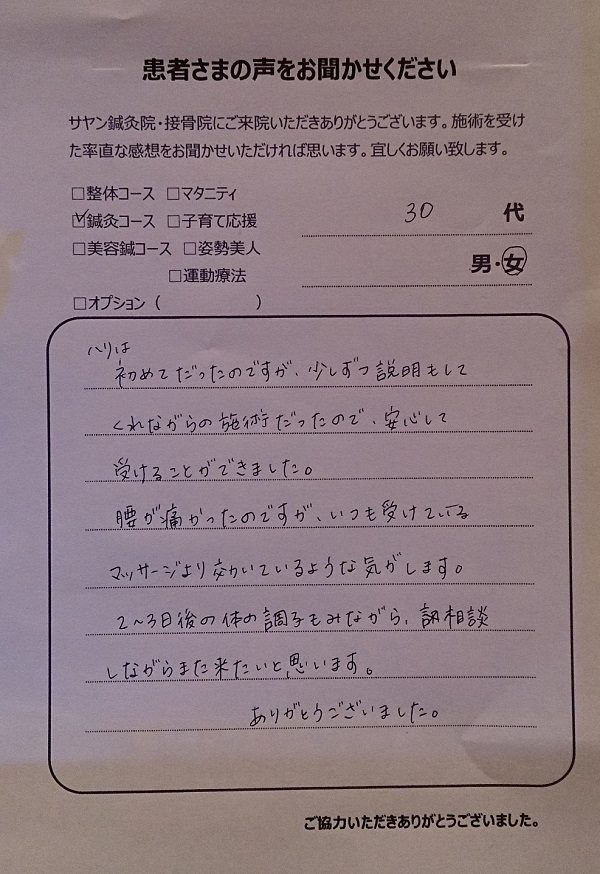 患者さまの声をお聞かせください
サヤン鍼灸院・接骨院にご来院いただきありがとうございます。施術を受け
た率直な感想をお聞かせいただければ思います。宜しくお願い致します。
□整体コース □マタニティ
☑鍼灸コース □子育て応援
□美容鍼コース □姿勢美人
□運動療法
□オプション（ ）
30 代
男・女
ハリは
初めてだったのですが、少しずつ説明もして
くれながらの施術だったので、安心して
受けることができました。
腰が痛かったのですが、いつも受けている
マッサージより効いているような気がします。
2～3日後の体の調子もみながら、相談
しながらまた来たいと思います。
ありがとうございました。
ご協力いただきありがとうございました。